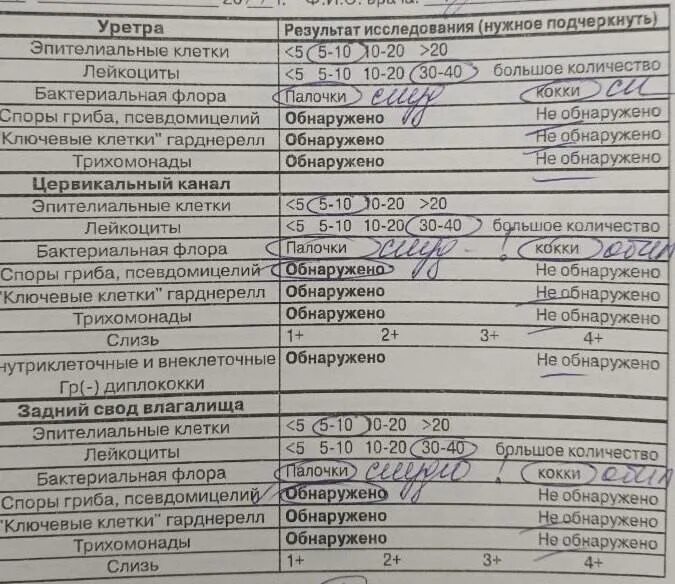 Ф.И.О. врача:
Уретра Результат исследования (нужное подчеркнуть)
Эпителиальные клетки <5 5-10 10-20 >20
Лейкоциты <5 5-10 10-20 30-40 большое количество
Бактериальная флора Палочки кокки
Споры гриба, псевдомицелий Обнаружено Не обнаружено
"Ключевые клетки" гарднерелл Обнаружено Не обнаружено
Трихомонады Обнаружено Не обнаружено
Цервикальный канал
Эпителиальные клетки <5 5-10 10-20 >20
Лейкоциты <5 5-10 10-20 30-40 большое количество
Бактериальная флора Палочки ! кокки
Споры гриба, псевдомицелий Обнаружено Не обнаружено
"Ключевые клетки" гарднерелл Обнаружено Не обнаружено
Трихомонады Обнаружено Не обнаружено
Слизь 1+ 2+ 3+ 4+
нутриклеточные и внеклеточные Обнаружено Не обнаружено
Гр(-) диплококки
Задний свод влагалища
Эпителиальные клетки <5 5-10 10-20 >20
Лейкоциты <5 5-10 10-20 30-40 большое количество
Бактериальная флора Палочки ! кокки
Споры гриба, псевдомицелий Обнаружено Не обнаружено
"Ключевые клетки" гарднерелл Обнаружено Не обнаружено
Трихомонады Обнаружено Не обнаружено
Слизь 1+ 2+ 3+ 4+